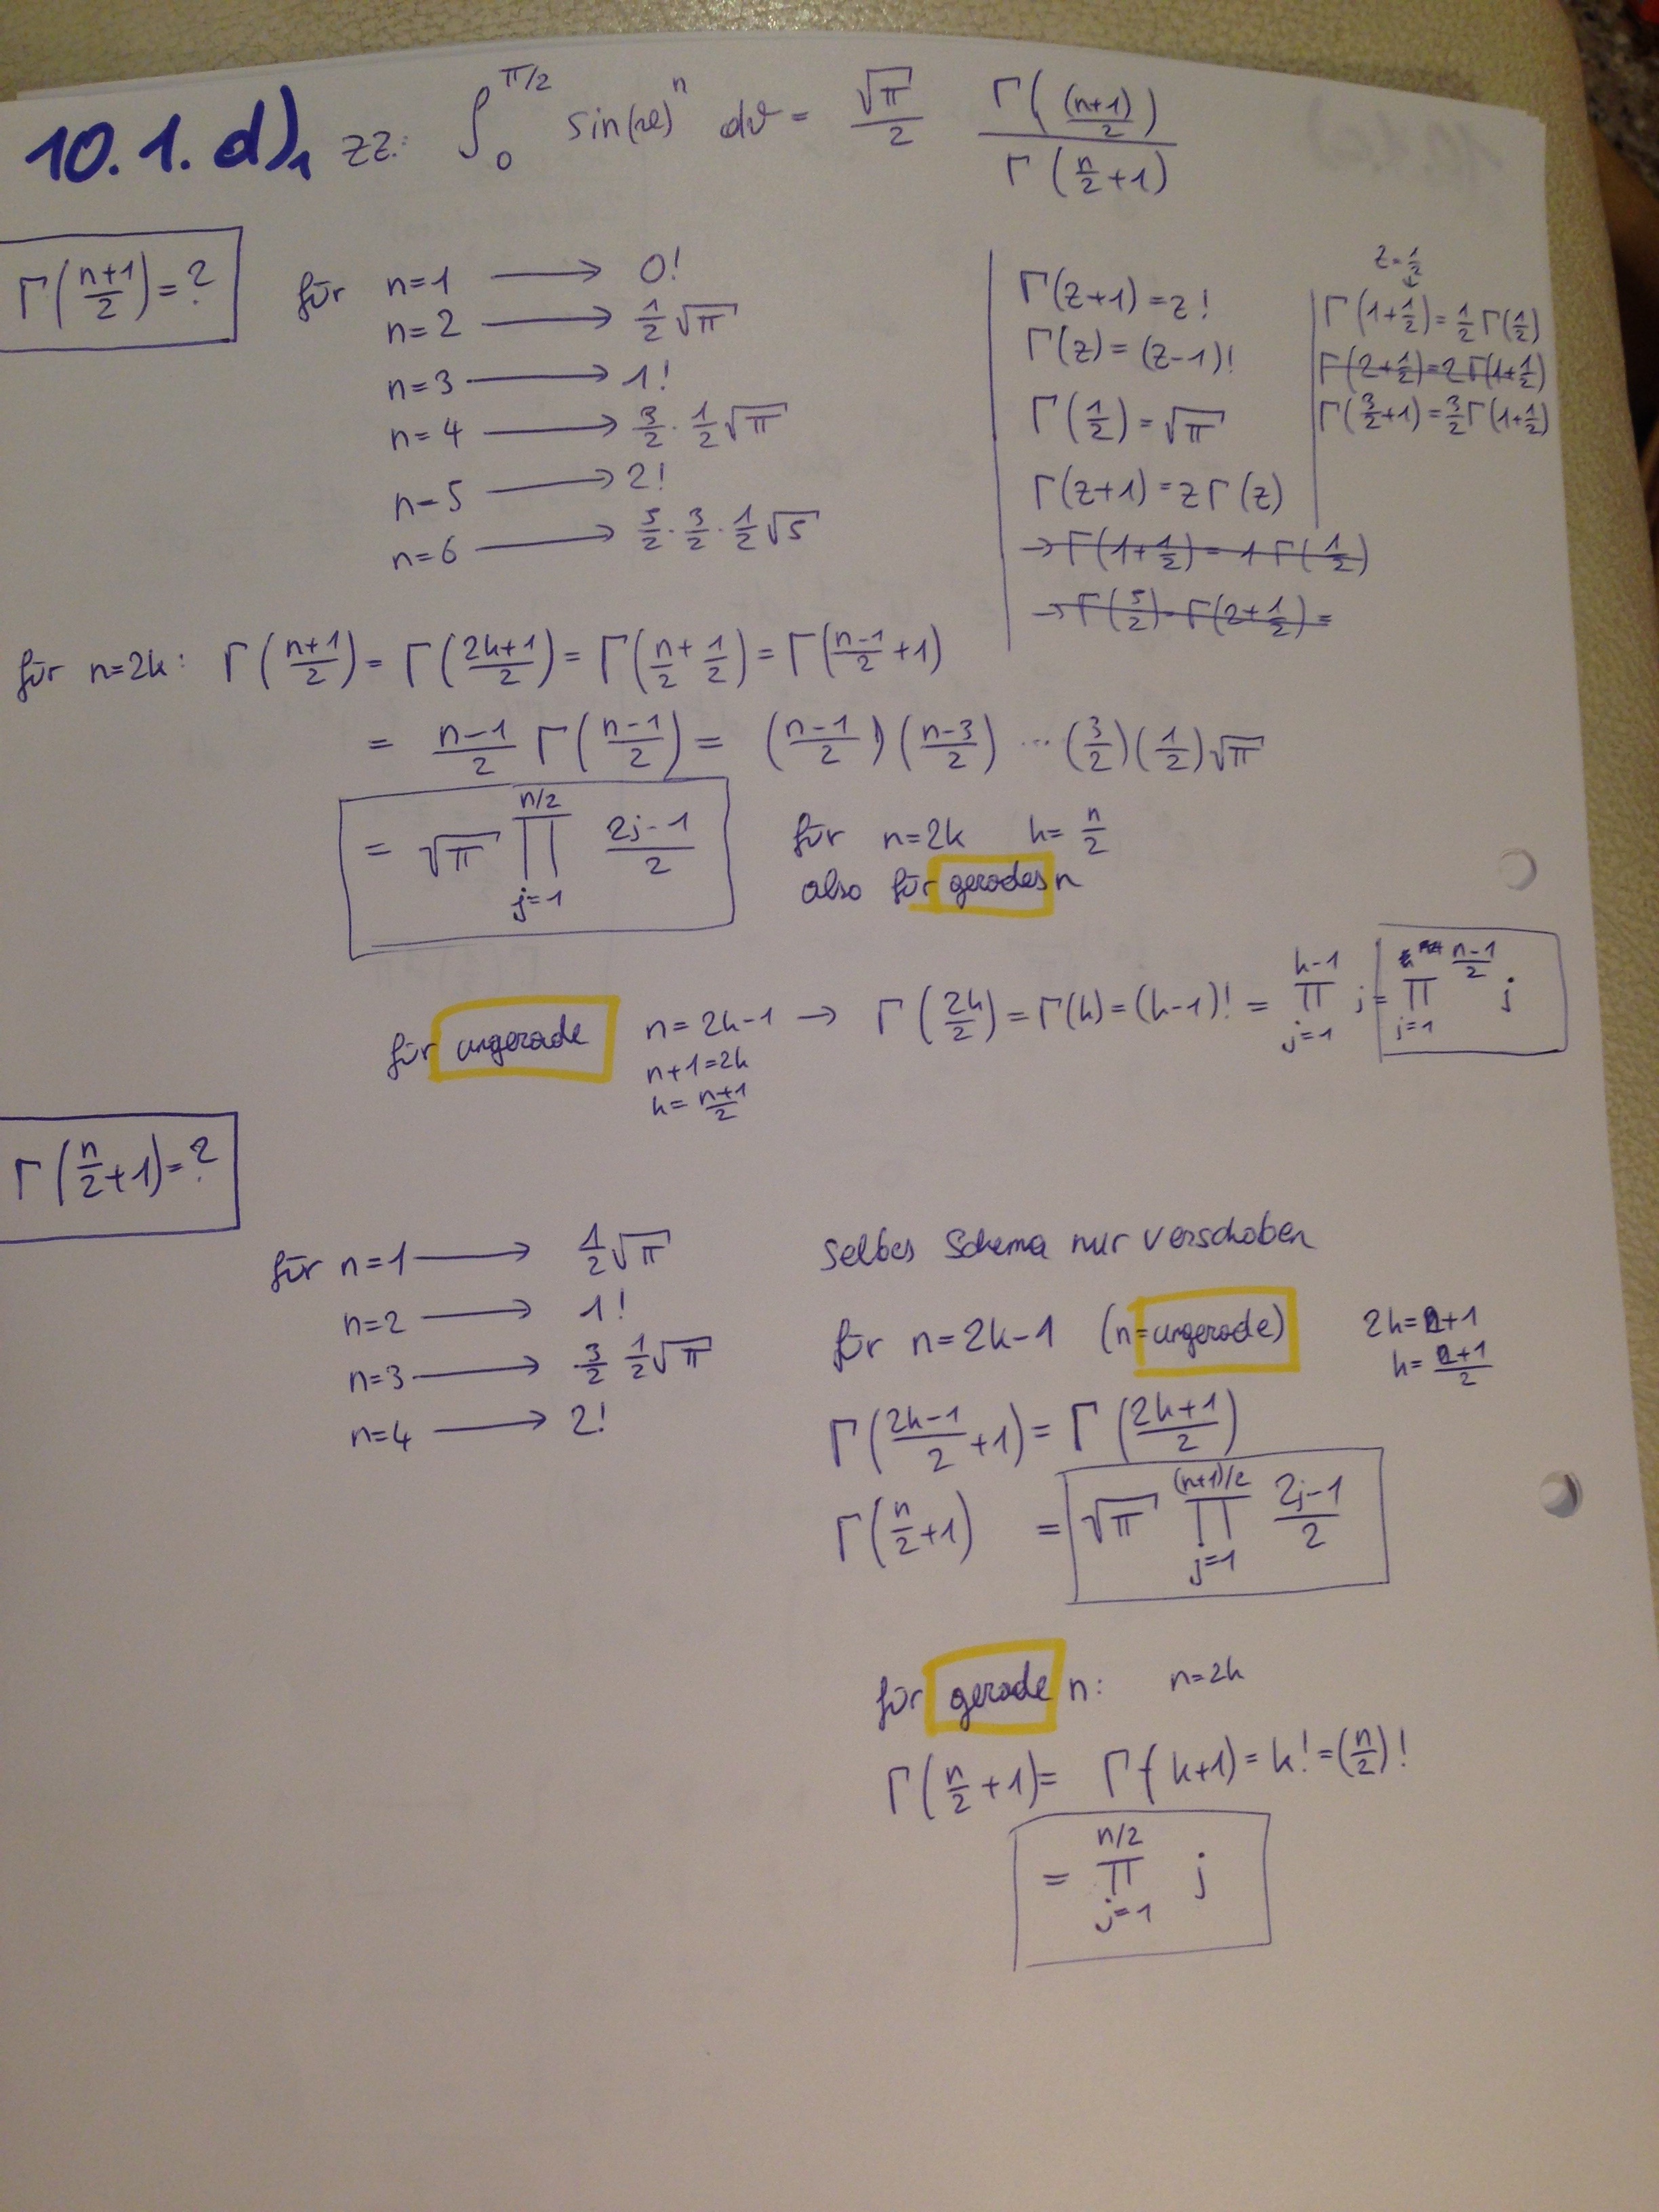 10.1.d)₁ zz: ∫₀^{π/2} sin(ϑ)ⁿ dϑ = √π/2 Γ((n+1)/2) / Γ(n/2+1)
Γ((n+1)/2) = ?
für n=1 → 0!
n=2 → 1/2 √π
n=3 → 1!
n=4 → 3/2 · 1/2 √π
n=5 → 2!
n=6 → 5/2 · 3/2 · 1/2 √5
Γ(z+1) = z!
Γ(z) = (z-1)!
Γ(1/2) = √π
Γ(z+1) = z Γ(z)
→ Γ(1+1/2) = 1 Γ(1/2)
→ Γ(5/2) = Γ(2+1/2) =
z=1/2
↓
Γ(1+1/2) = 1/2 Γ(1/2)
Γ(2+1/2) = 2 Γ(1+1/2)
Γ(3/2+1) = 3/2 Γ(1+1/2)
für n=2k: Γ((n+1)/2) = Γ((2k+1)/2) = Γ(n/2 + 1/2) = Γ((n-1)/2 + 1)
= (n-1)/2 Γ((n-1)/2) = ((n-1)/2) ((n-3)/2) ... (3/2)(1/2)√π
= √π ∏_{j=1}^{n/2} (2j-1)/2
für n=2k k=n/2
also für gerades n
für ungerade n=2k-1 → Γ(2k/2) = Γ(k) = (k-1)! = ∏_{j=1}^{k-1} j = ∏_{j=1}^{(n-1)/2} j
n+1=2k
k=(n+1)/2
Γ(n/2+1) = ?
für n=1 → 1/2 √π
n=2 → 1!
n=3 → 3/2 1/2 √π
n=4 → 2!
Selbes Schema nur verschoben
für n=2k-1 (n=ungerade)
2k=n+1
k=(n+1)/2
Γ((2k-1)/2 + 1) = Γ((2k+1)/2)
Γ(n/2+1) = √π ∏_{j=1}^{(n+1)/2} (2j-1)/2
für gerade n: n=2k
Γ(n/2+1) = Γ(k+1) = k! = (n/2)!
= ∏_{j=1}^{n/2} j